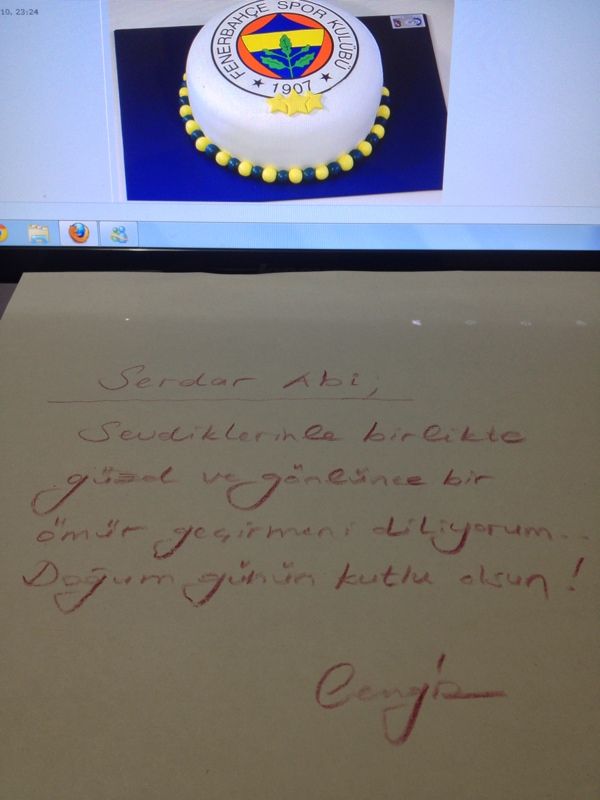 10, 23:24
FENERBAHÇE SPOR KULÜBÜ
★ 1907 ★
Serdar Abi,
Sevdiklerinle birlikte
güzel ve gönlünce bir
ömür geçirmeni diliyorum..
Doğum günün kutlu olsun!
Cengiz